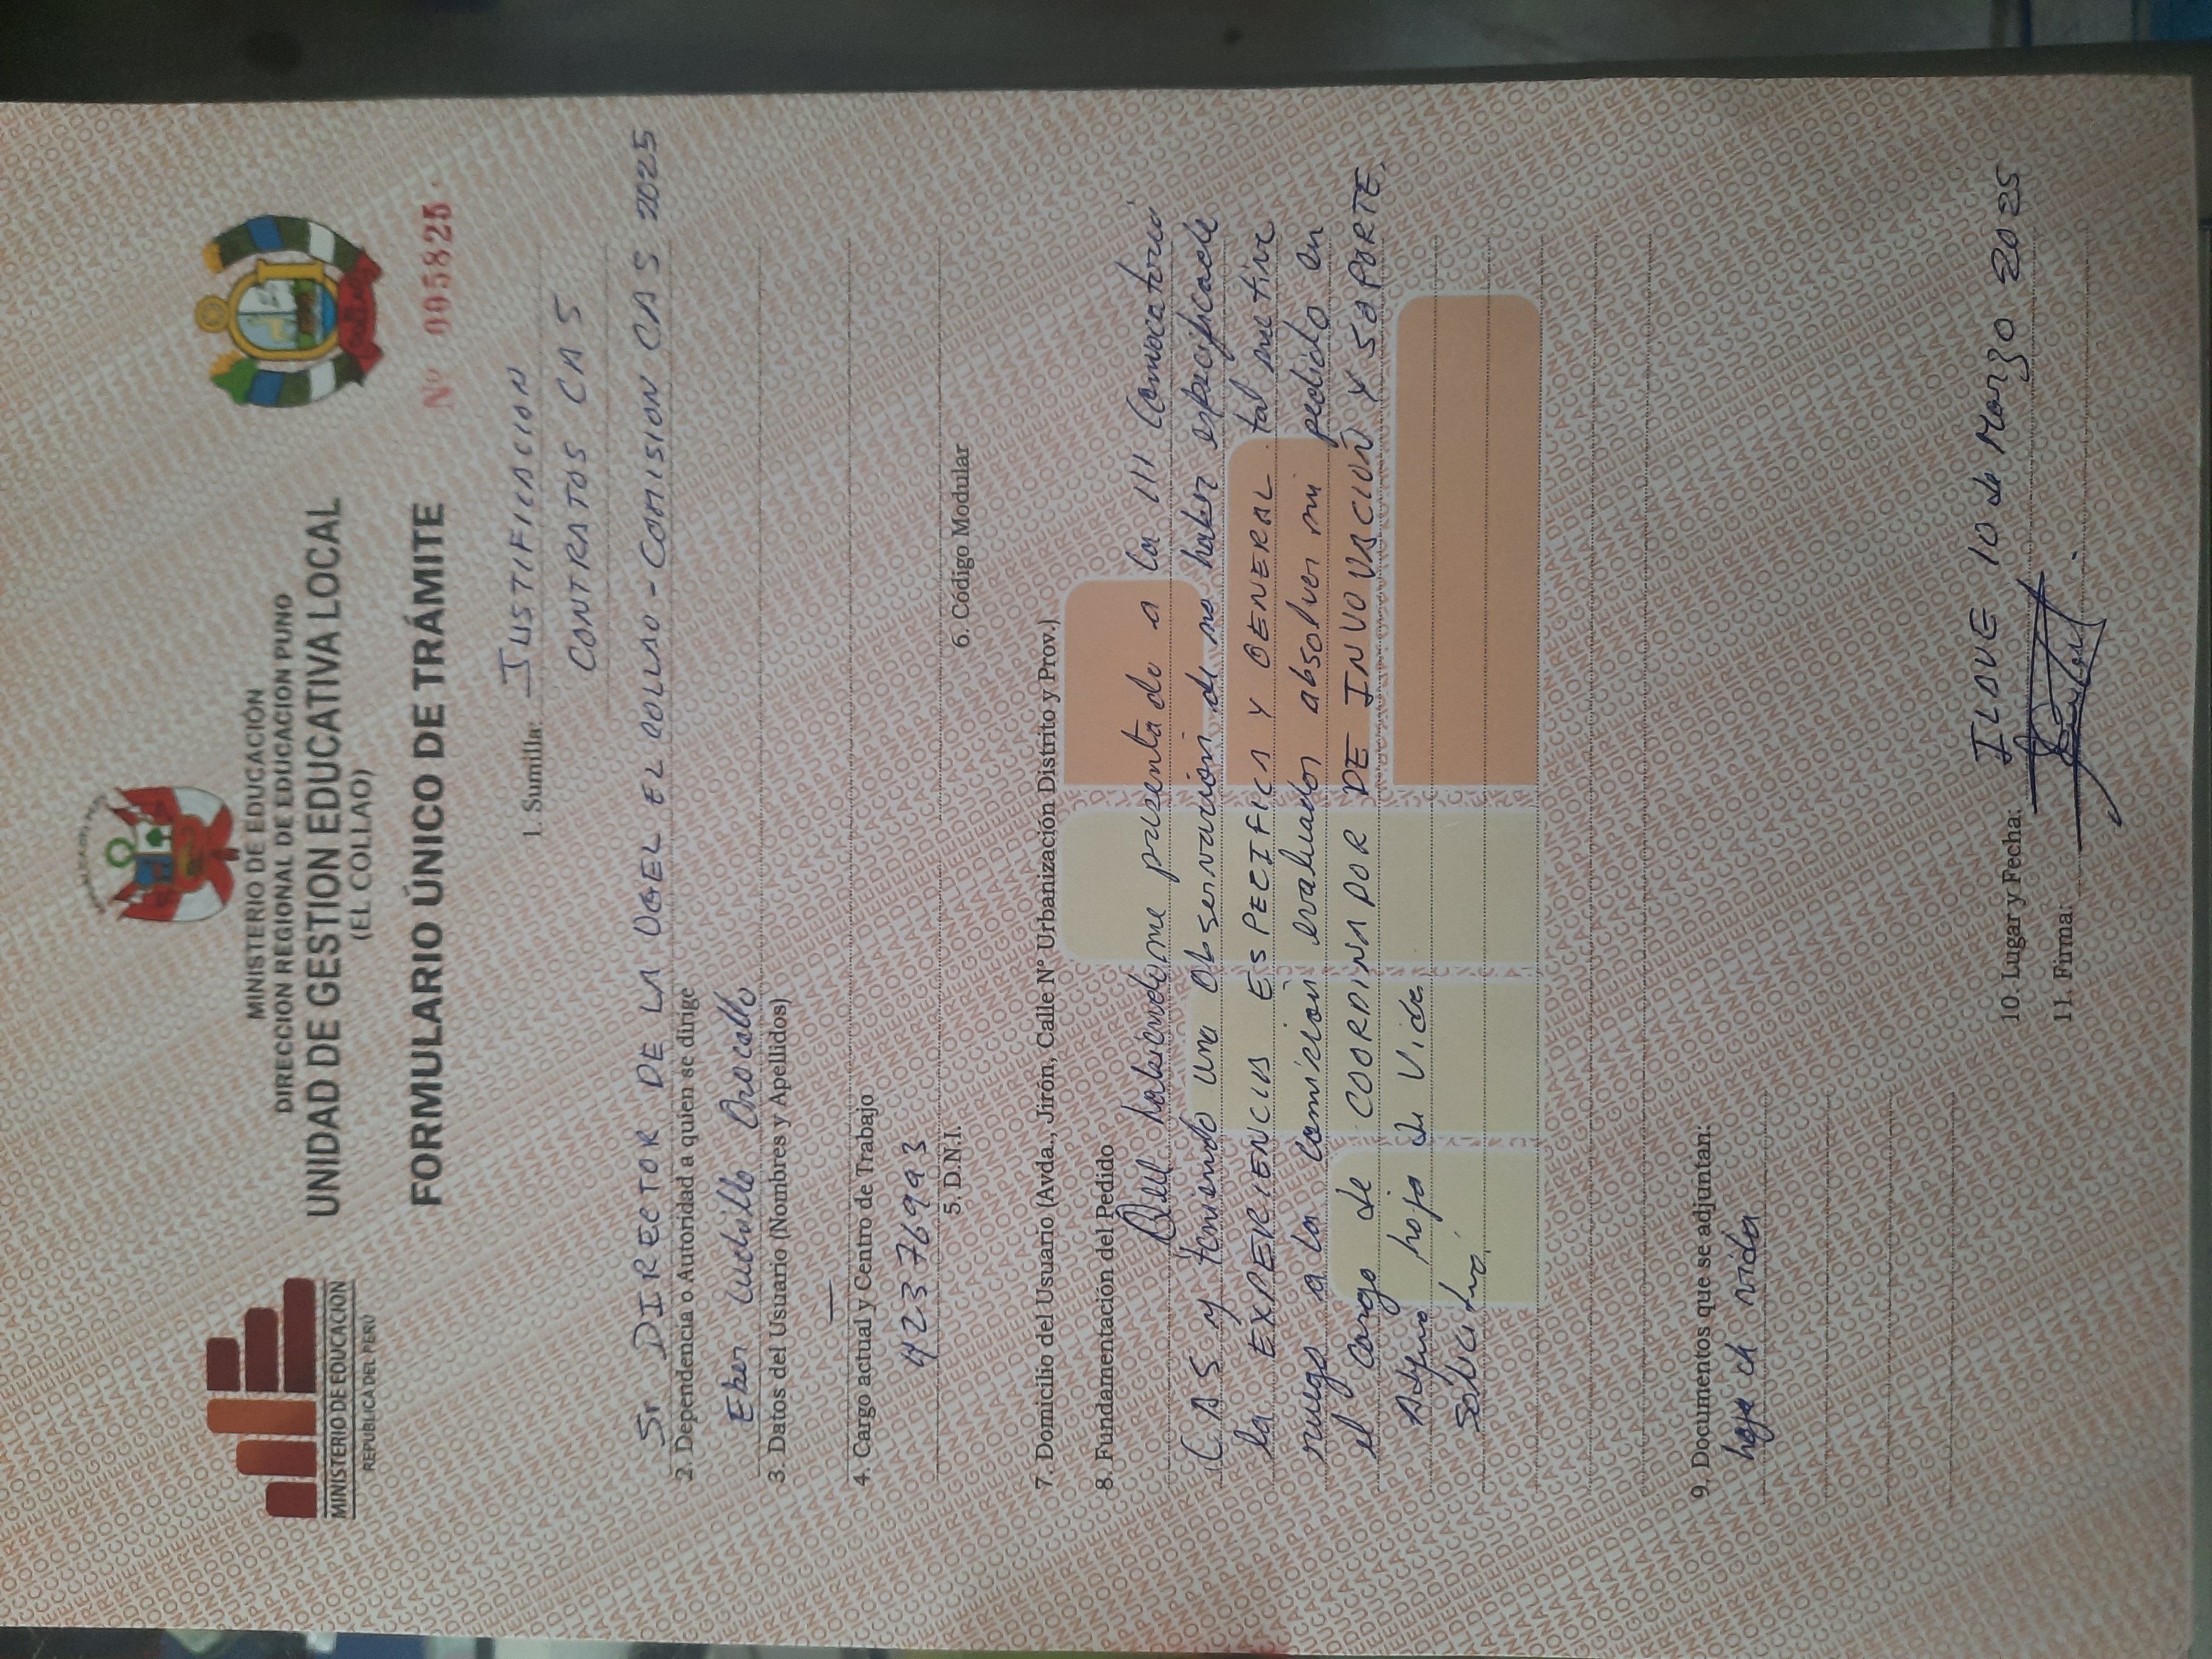 MINISTERIO DE EDUCACION
REPUBLICA DEL PERU
MINISTERIO DE EDUCACIÓN
DIRECCION REGIONAL DE EDUCACION PUNO
UNIDAD DE GESTION EDUCATIVA LOCAL
(EL COLLAO)
FORMULARIO ÚNICO DE TRÁMITE
Nº 005825
1. Sumilla: JUSTIFICACION
CONTRATOS CAS
Sr DIRECTOR DE LA UGEL EL COLLAO - COMISION CAS 2025
2. Dependencia o Autoridad a quien se dirige
Eber Cudillo
3. Datos del Usuario (Nombres y Apellidos)
4. Cargo actual y Centro de Trabajo
42376993
5. D.N.I.
6. Código Modular
7. Domicilio del Usuario (Avda., Jirón, Calle Nº Urbanización Distrito y Prov.)
8. Fundamentación del Pedido
habiendome presentado a la III Convocatoria
CAS y teniendo una observación de no haber especificado
la EXPERIENCIA ESPECIFICA Y GENERAL tal motivo
ruego a la comición evaluador absolver mi pedido en
el cargo de COORDINADOR DE INNOVACIÓN Y SOPORTE.
Adjuno hoja de Vida
Solicito
9. Documentos que se adjuntan:
hoja de vida
10. Lugar y Fecha: ILAVE 10 de Marzo 2025
11. Firma: